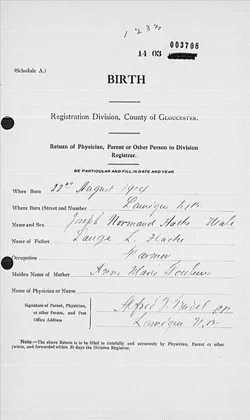 1232
003708
14 03
(Schedule A.)
BIRTH
Registration Division, County of GLOUCESTER.
Return of Physician, Parent or Other Person to Division
Registrar.
BE PARTICULAR AND FILL IN DATE AND YEAR
When Born 22nd August 1914
Where Born (Street and Number) Lameque N.B.
Name and Sex Joseph Normand Male
Name of Father L.
Occupation Farmer
Maiden Name of Mother Anne Marie
Name of Physician or Nurse
Signature of Parent, Physician,
or other Person, and Post
Office Address
Alfred
Lameque N.B.
Note.—The above Return is to be filled in carefully and accurately by Physician, Parent or other
person, and forwarded within 30 days the Division Registrar.